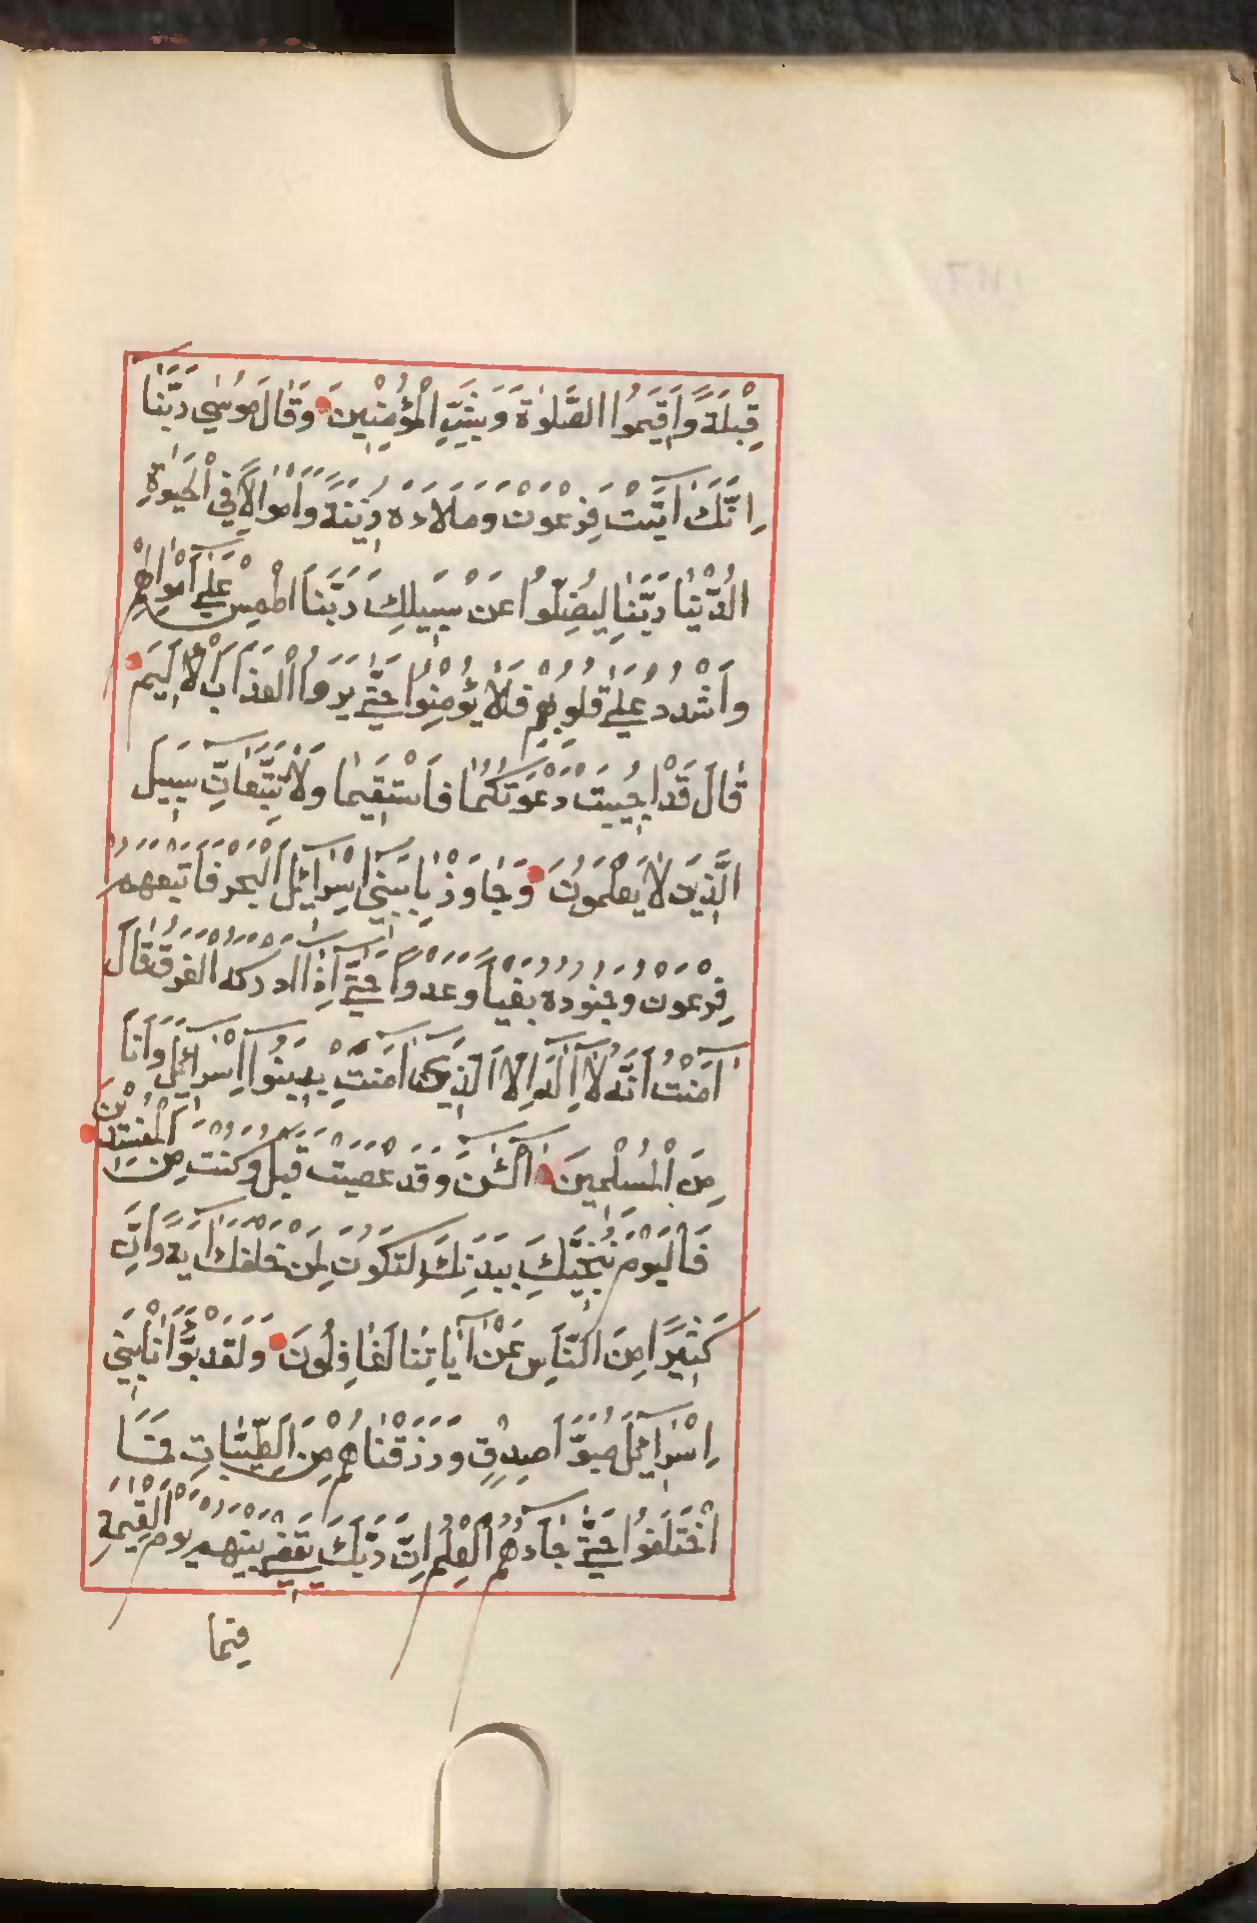 قِبْلَةً وَاَقِيمُوا الصَّلٰوةَ وَبَشِّرِ الْمُؤْمِنِينَ وَقَالَ مُوسٰى رَبَّنَا
اِنَّكَ اٰتَيْتَ فِرْعَوْنَ وَمَلَاَهُ زِينَةً وَاَمْوَالًا فِي الْحَيٰوةِ
الدُّنْيَا رَبَّنَا لِيُضِلُّوا عَنْ سَبِيلِكَ رَبَّنَا اطْمِسْ عَلٰى اَمْوَالِهِمْ
وَاشْدُدْ عَلٰى قُلُوبِهِمْ فَلَا يُؤْمِنُوا حَتّٰى يَرَوُا الْعَذَابَ الْاَلِيمَ
قَالَ قَدْ اُجِيبَتْ دَعْوَتُكُمَا فَاسْتَقِيمَا وَلَا تَتَّبِعَانِّ سَبِيلَ
الَّذِينَ لَا يَعْلَمُونَ وَجَاوَزْنَا بِبَنِي اِسْرَائِلَ الْبَحْرَ فَاَتْبَعَهُمْ
فِرْعَوْنُ وَجُنُودُهُ بَغْيًا وَعَدْوًا حَتّٰى اِذَا اَدْرَكَهُ الْغَرَقُ قَالَ
اٰمَنْتُ اَنَّهُ لَا اِلٰهَ اِلَّا الَّذِي اٰمَنَتْ بِهِ بَنُوا اِسْرَائِلَ وَاَنَا
مِنَ الْمُسْلِمِينَ اٰلْئٰنَ وَقَدْ عَصَيْتَ قَبْلُ وَكُنْتَ مِنَ الْمُفْسِدِينَ
فَالْيَوْمَ نُنَجِّيكَ بِبَدَنِكَ لِتَكُونَ لِمَنْ خَلْفَكَ اٰيَةً وَاِنَّ
كَثِيرًا مِنَ النَّاسِ عَنْ اٰيَاتِنَا لَغَافِلُونَ وَلَقَدْ بَوَّاْنَا بَنِي
اِسْرَائِلَ مُبَوَّاَ صِدْقٍ وَرَزَقْنَاهُمْ مِنَ الطَّيِّبَاتِ فَمَا
اخْتَلَفُوا حَتّٰى جَاءَهُمُ الْعِلْمُ اِنَّ رَبَّكَ يَقْضِي بَيْنَهُمْ يَوْمَ الْقِيٰمَةِ
فِيمَا